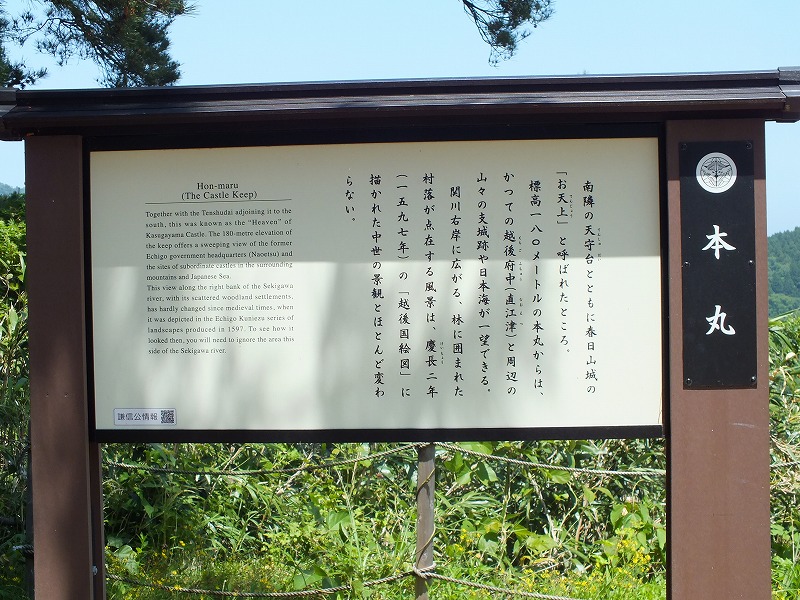 Hon-maru
(The Castle Keep)
Together with the Tenshudai adjoining it to the
south, this was known as the "Heaven" of
Kasugayama Castle. The 180-metre elevation of
the keep offers a sweeping view of the former
Echigo government headquarters (Naoetsu) and
the sites of subordinate castles in the surrounding
mountains and Japanese Sea.
This view along the right bank of the Sekigawa
river, with its scattered woodland settlements,
has hardly changed since medieval times, when
it was depicted in the Echigo Kuniezu series of
landscapes produced in 1597. To see how it
looked then, you will need to ignore the area this
side of the Sekigawa river.
謙信公情報
南隣の天守台とともに春日山城の
「お天上」と呼ばれたところ。
標高一八〇メートルの本丸からは、
かつての越後府中(直江津)と周辺の
山々の支城跡や日本海が一望できる。
関川右岸に広がる、林に囲まれた
村落が点在する風景は、慶長二年
(一五九七年)の「越後国絵図」に
描かれた中世の景観とほとんど変わ
らない。
本丸